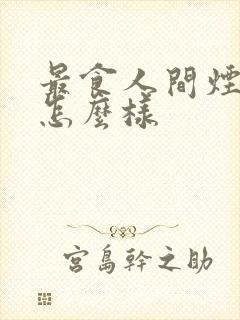 最食人間煙
怎麼樣
宮島幹之助